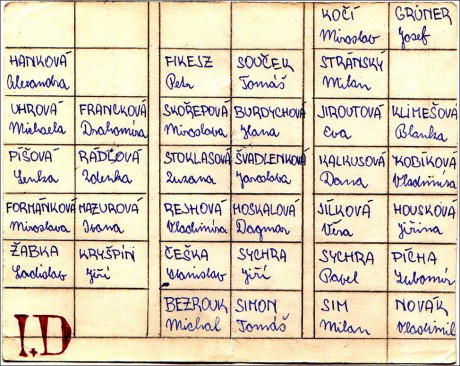 KOČÍ GRÜNER
Miroslav Josef
HANKOVÁ FIKEJZ SOUČEK STRÁNSKÝ
Alexandra Petr Tomáš Milan
UHROVÁ FRANCKOVÁ SKOŘEPOVÁ BURDYCHOVÁ JIROUTOVÁ KLIMEŠOVÁ
Michaela Drahomíra Miroslava Hana Eva Blanka
PÍŠOVÁ RÁDLOVÁ STOKLASOVÁ ŠVADLENKOVÁ KALKUSOVÁ KODÍKOVÁ
Lenka Zdenka Zuzana Jaroslava Dana Vladimíra
FORMÁNKOVÁ MAZUROVÁ REJHOVÁ MOSKALOVÁ JÍLKOVÁ HOUSKOVÁ
Miroslava Ivana Vladimíra Dagmar Věra Jiřina
ŽABKA KRYŠPÍN ČEŠKA SYCHRA SYCHRA PÍCHA
Ladislav Jiří Stanislav Jiří Pavel Lubomír
BEZROUK SIMON SIM NOVÁK
Michal Tomáš Milan Vladimil
I.D